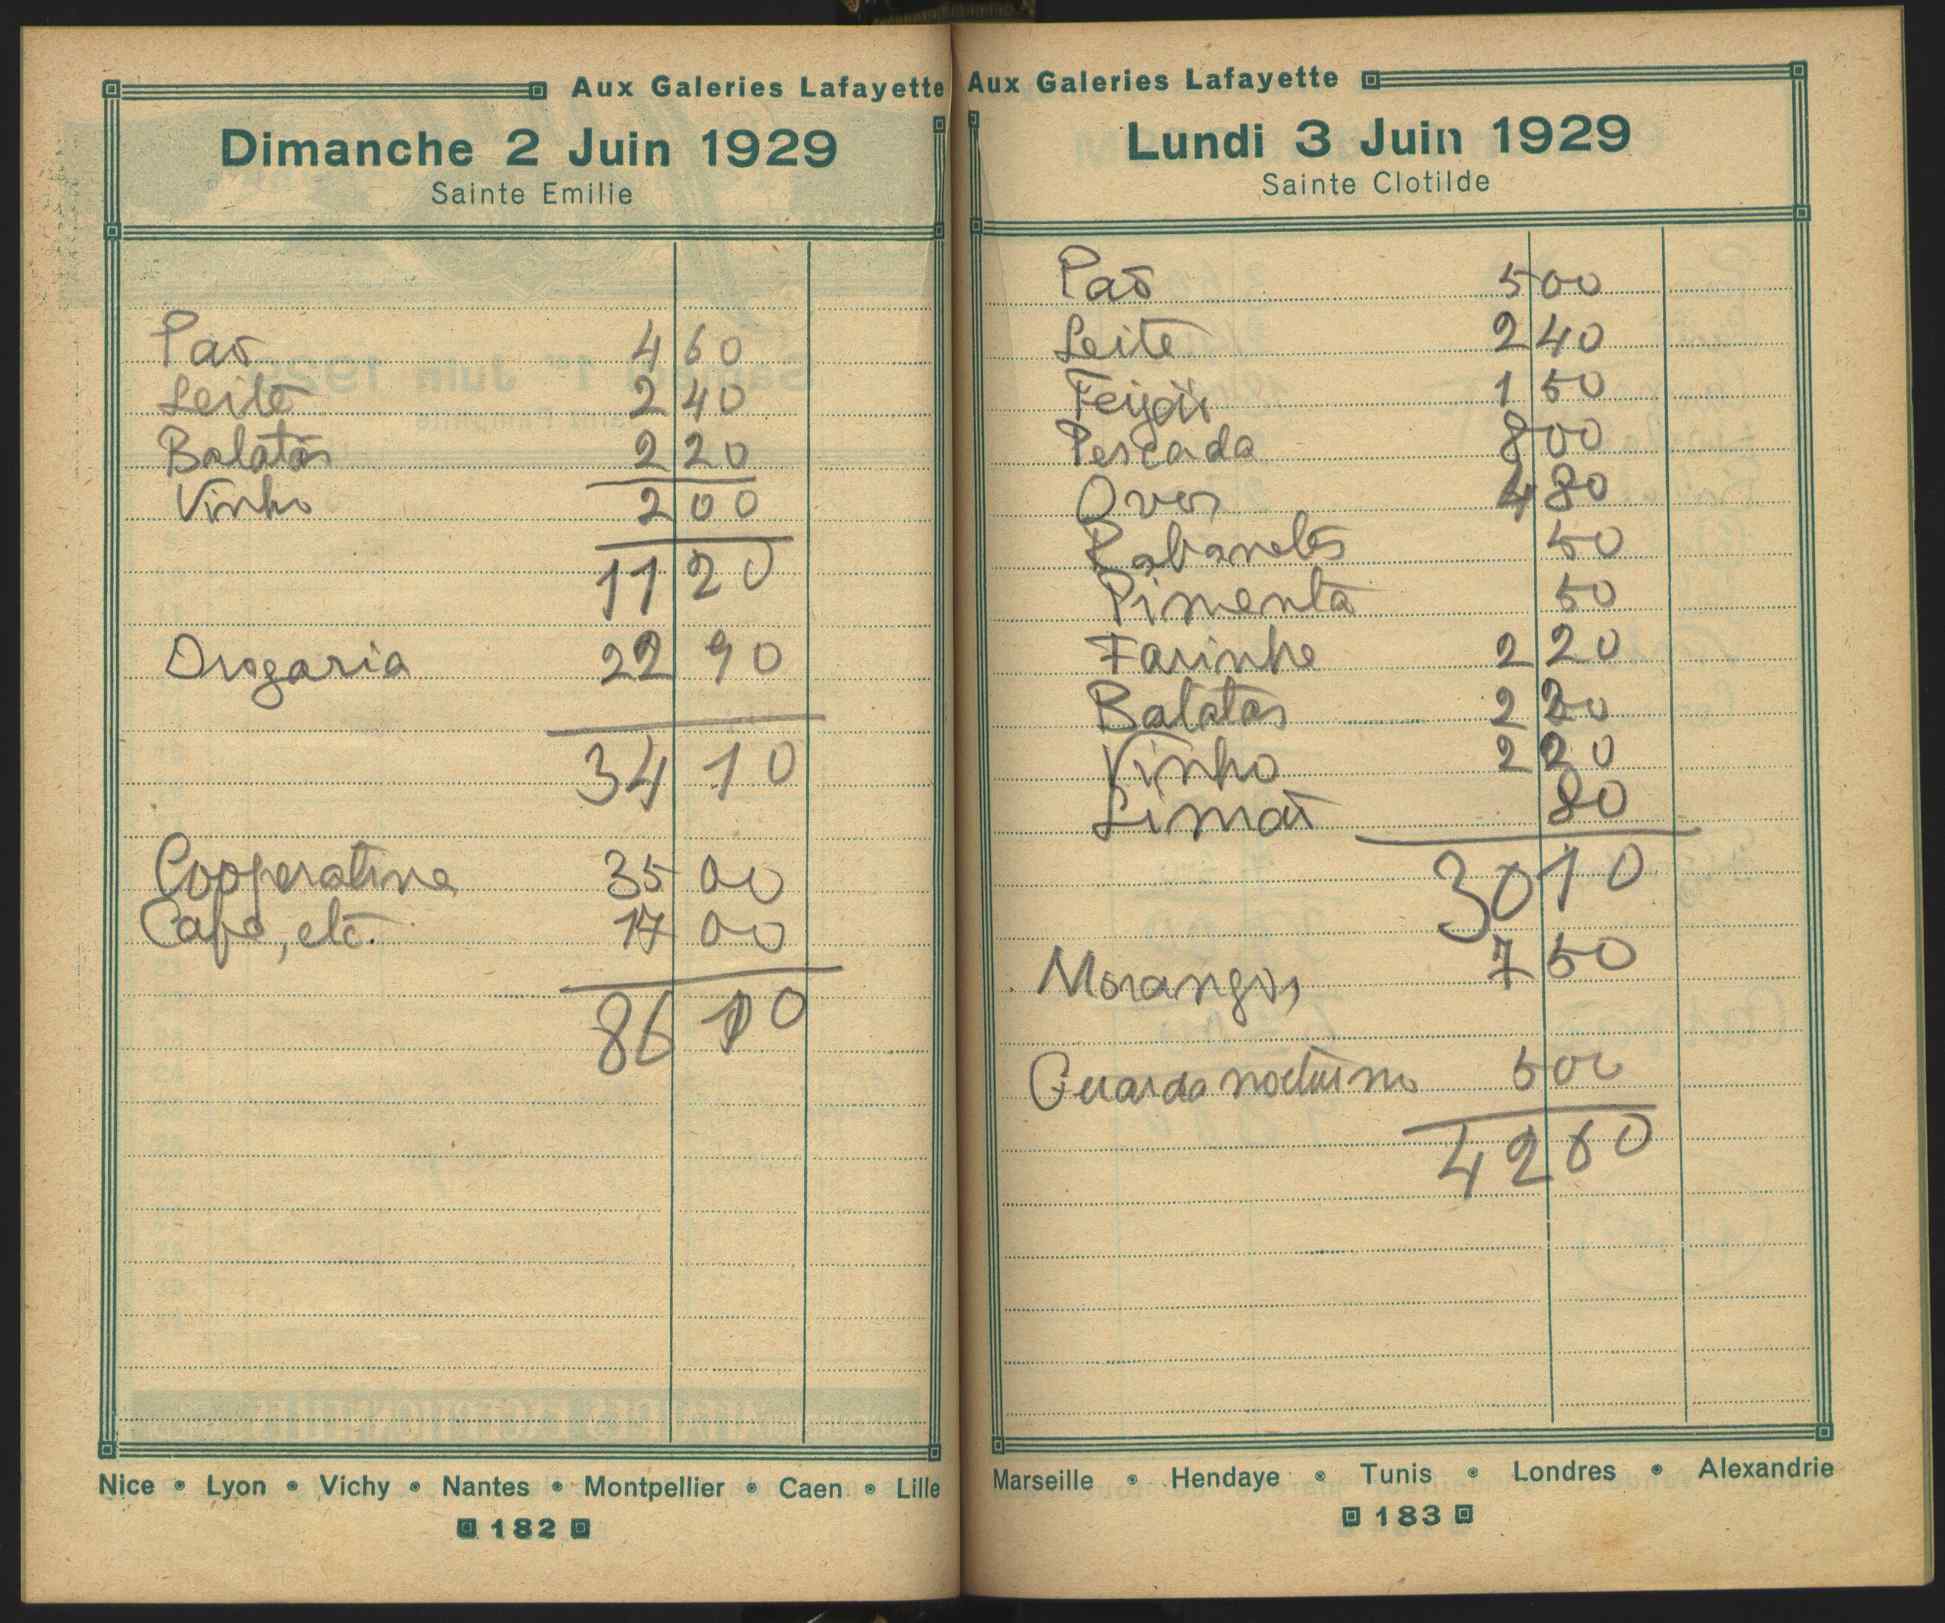 Aux Galeries Lafayette
Dimanche 2 Juin 1929
Sainte Emilie
Pão 4 60
Leite 2 40
Batatas 2 20
Vinho 2 00
11 20
Drogaria 22 90
34 10
Cooperativa 35 00
Café, etc. 17 00
86 10
Nice • Lyon • Vichy • Nantes • Montpellier • Caen • Lille
182
Aux Galeries Lafayette
Lundi 3 Juin 1929
Sainte Clotilde
Pão 5 00
Leite 2 40
Feijão 1 50
Pescada 8 00
Ovos 4 80
Rabanetes 50
Pimenta 50
Farinha 2 20
Batatas 2 20
Vinho 2 20
Limão 80
30 10
Morangos 7 50
Guarda nocturno 5 00
42 60
Marseille • Hendaye • Tunis • Londres • Alexandrie
183